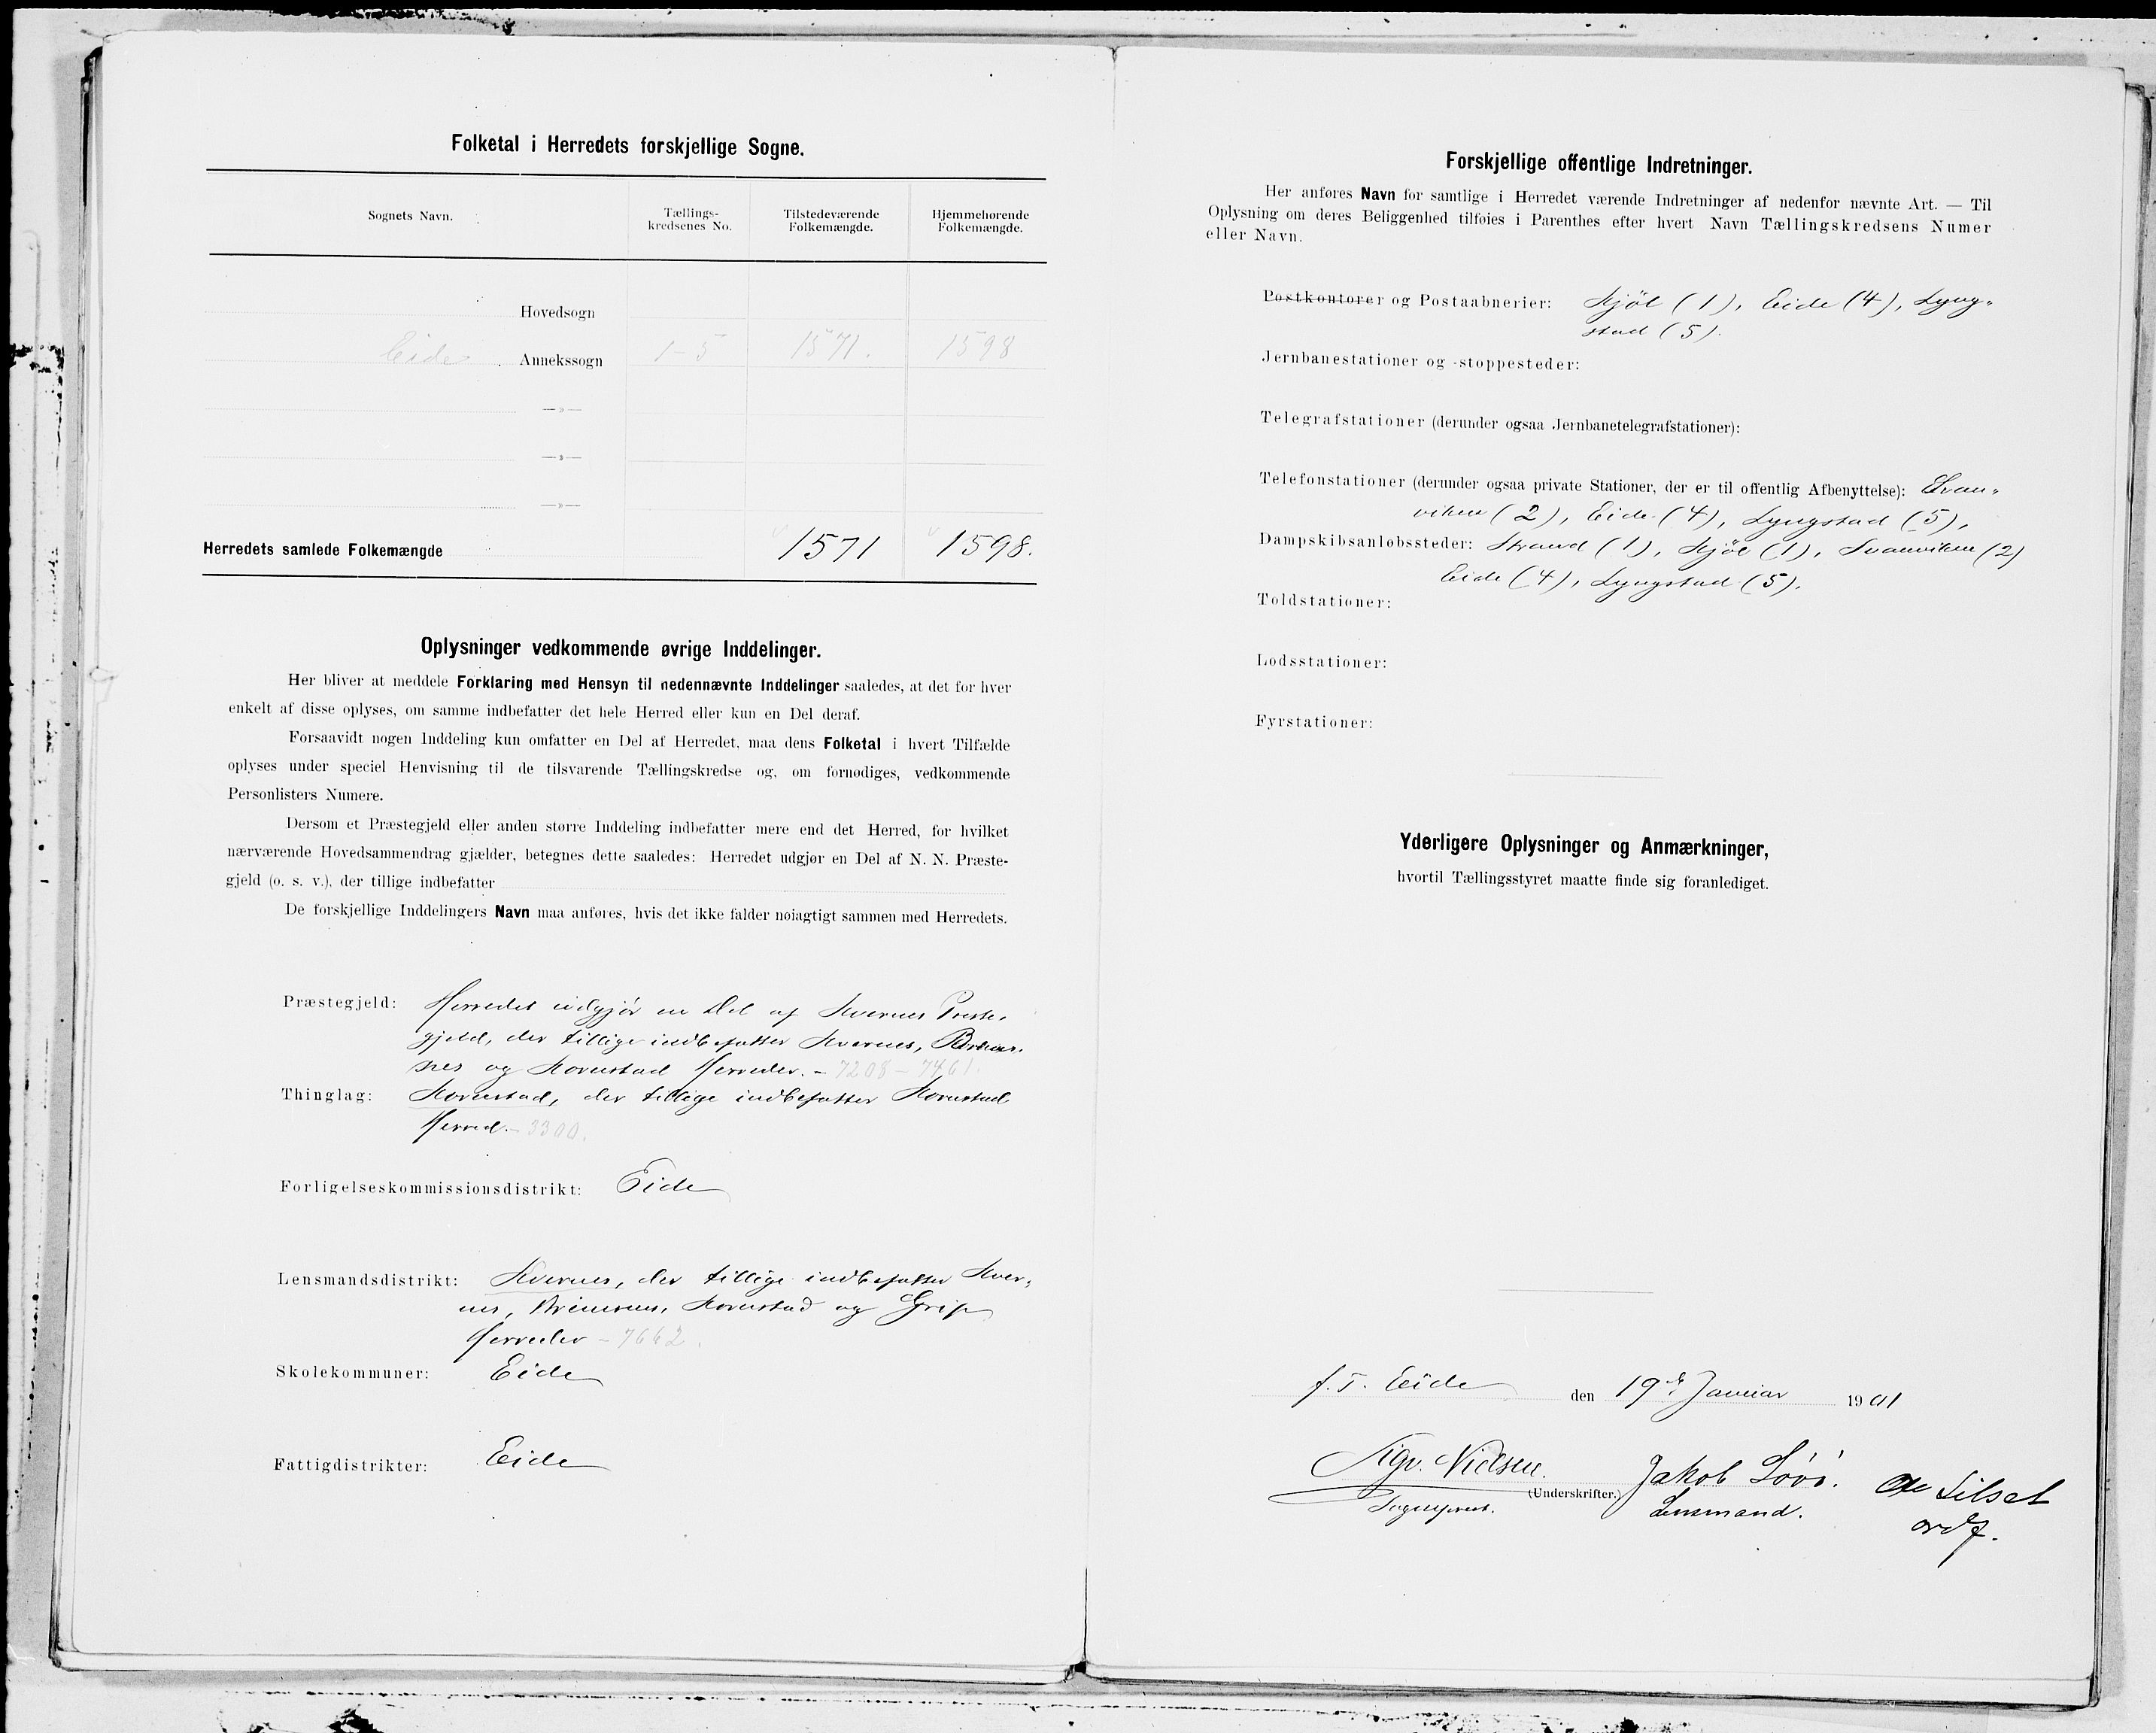 Folketal i Herredets forskjellige Sogne.
Sognets Navn. Tællings-kredsenes No. Tilstedeværende Folkemængde. Hjemmehørende Folkemængde.
Hovedsogn
Eide Annekssogn 1-5 1571. 1598
—»—
—»—
—»—
Herredets samlede Folkemængde 1571 1598.
Oplysninger vedkommende øvrige Inddelinger.
Her bliver at meddele Forklaring med Hensyn til nedennævnte Inddelinger saaledes, at det for hver
enkelt af disse oplyses, om samme indbefatter det hele Herred eller kun en Del deraf.
Forsaavidt nogen Inddeling kun omfatter en Del af Herredet, maa dens Folketal i hvert Tilfælde
oplyses under speciel Henvisning til de tilsvarende Tællingskredse og, om fornødiges, vedkommende
Personlisters Numere.
Dersom et Præstegjeld eller anden større Inddeling indbefatter mere end det Herred, for hvilket
nærværende Hovedsammendrag gjælder, betegnes dette saaledes: Herredet udgjør en Del af N. N. Præste-
gjeld (o. s. v.), der tillige indbefatter
De forskjellige Inddelingers Navn maa anføres, hvis det ikke falder nøiagtigt sammen med Herredets.
Præstegjeld: Herredet udgjør en Del af Kvernes Preste-
gjeld, der tillige indbefatter Kvernes, Bremsnes og Kornstad Herreder. – 7208 – 7461.
Thinglag: Kornstad, der tillige indbefatter Kornstad
Herred. – 3300.
Forligelseskommissionsdistrikt: Eide
Lensmandsdistrikt: Kvernes, der tillige indbefatter Kver-
nes, Bremsnes, Kornstad og Grip
Herreder – 7662.
Skolekommuner: Eide
Fattigdistrikter: Eide
Forskjellige offentlige Indretninger.
Her anføres Navn for samtlige i Herredet værende Indretninger af nedenfor nævnte Art. — Til
Oplysning om deres Beliggenhed tilføies i Parenthes efter hvert Navn Tællingskredsens Numer
eller Navn.
Postkontorer og Postaabnerier: Kjøl (1), Eide (4), Lyng-
stad (5).
Jernbanestationer og -stoppesteder:
Telegrafstationer (derunder ogsaa Jernbanetelegrafstationer):
Telefonstationer (derunder ogsaa private Stationer, der er til offentlig Afbenyttelse): Svan-
viken (2), Eide (4), Lyngstad (5),
Dampskibsanløbssteder: Strand (1), Kjøl (1), Svanviken (2)
Eide (4), Lyngstad (5).
Toldstationer:
Lodsstationer:
Fyrstationer:
Yderligere Oplysninger og Anmærkninger,
hvortil Tællingsstyret maatte finde sig foranlediget.
f. T. Eide den 19de Januar 1901
Sigv. Nielsen. Jakob Løvø. Silset
(Underskrifter.)
Sogneprest. Lensmand. ordf.